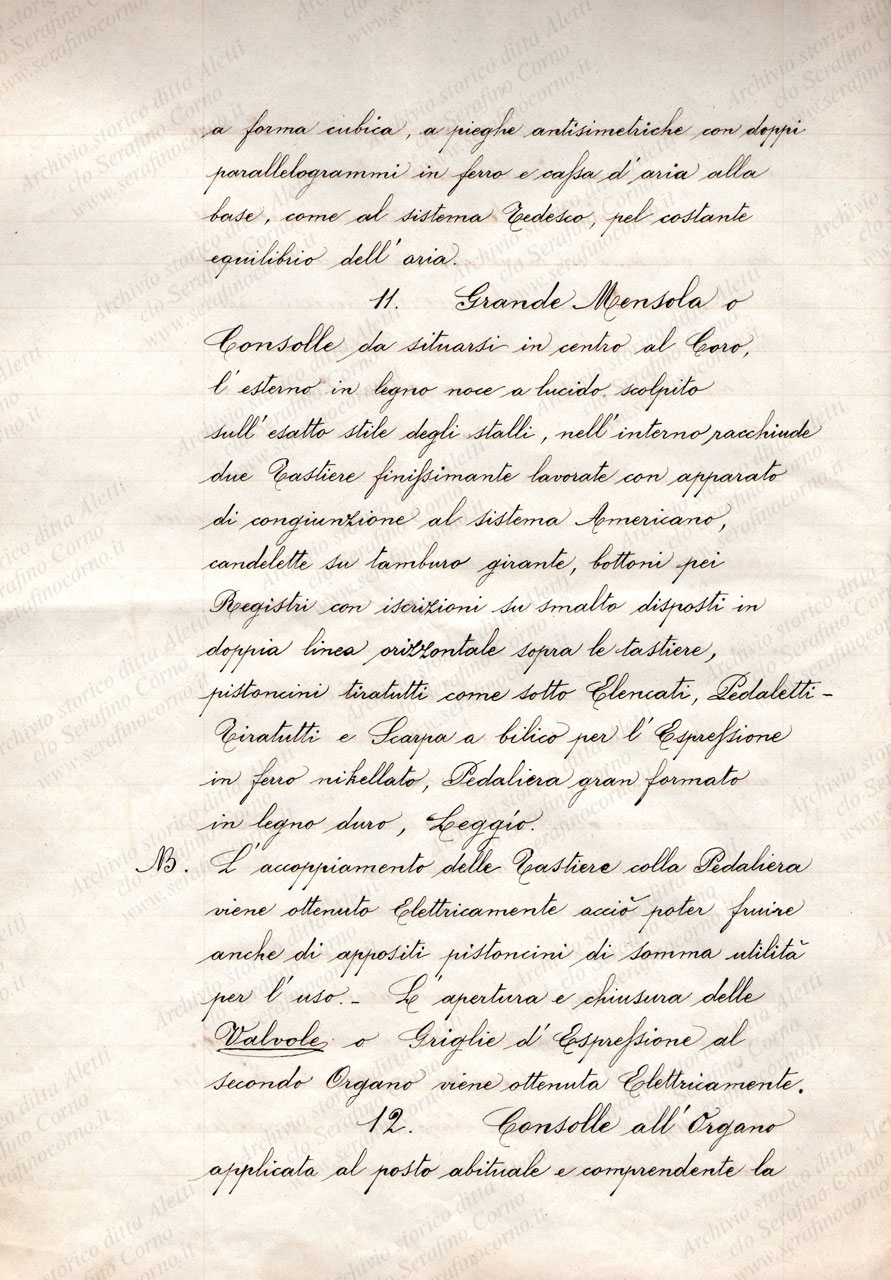 a forma cubica, a pieghe antisimetriche con doppi
parallelogrammi in ferro e cassa d'aria alla
base, come al sistema Tedesco, pel costante
equilibrio dell'aria.
11. Grande Mensola o
Consolle da situarsi in centro al Coro,
l'esterno in legno noce a lucido scolpito
sull'esatto stile degli stalli, nell'interno racchiude
due Tastiere finissimante lavorate con apparato
di congiunzione al sistema Americano,
candelette su tamburo girante, bottoni pei
Registri con iscrizioni su smalto disposti in
doppia linea orizzontale sopra le tastiere,
pistoncini tiratutti come sotto Elencati, Pedaletti-
Tiratutti e Scarpa a bilico per l'Espressione
in ferro nikellato, Pedaliera gran formato
in legno duro, Leggío.
NB. L'accoppiamento delle Tastiere colla Pedaliera
viene ottenuto Elettricamente acciò poter fruire
anche di appositi pistoncini di somma utilità
per l'uso.- L'apertura e chiusura delle
Valvole o Griglie d'Espressione al
secondo Organo viene ottenuta Elettricamente.
12. Consolle all'Organo
applicata al posto abituale e comprendente la
Archivio storico ditta Aletti
c/o Serafino Corno
www.serafinocorno.it